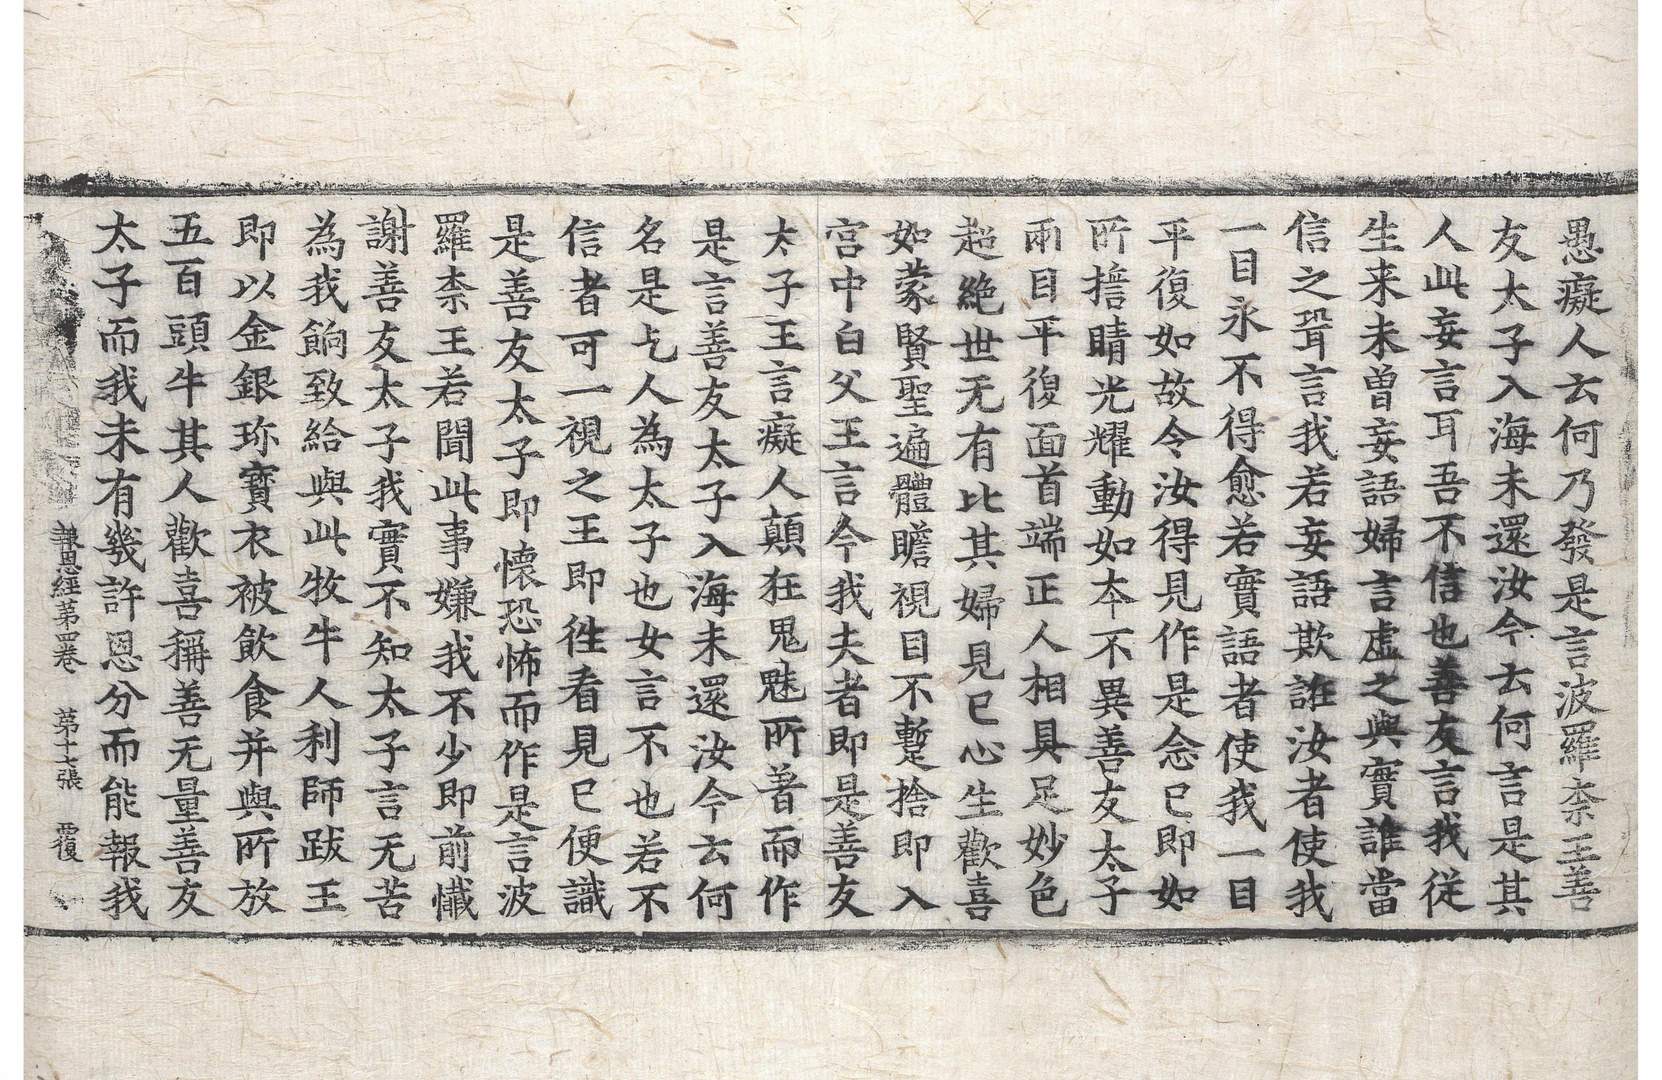 愚癡人云何乃發是言波羅柰王善
友太子入海未還汝今云何言是其
人此妄言耳吾不信也善友言我從
生来未曾妄語婦言虛之與實誰當
信之聟言我若妄語欺誰汝者使我
一目永不得愈若實語者使我一目
平復如故令汝得見作是念已即如
所捨睛光耀動如本不異善友太子
兩目平復面首端正人相具足妙色
超絶世无有比其婦見已心生歡喜
如蒙賢聖遍體瞻視目不暫捨即入
宫中白父王言今我夫者即是善友
太子王言癡人顛狂鬼魅所著而作
是言善友太子入海未還汝今云何
名是乞人為太子也女言不也若不
信者可一視之王即徃看見已便識
是善友太子即懷恐怖而作是言波
羅柰王若聞此事嫌我不少即前懴
謝善友太子我實不知太子言无苦
為我餉致給與此牧牛人利師跋王
即以金銀珎寳衣被飲食并與所放
五百頭牛其人歡喜稱善无量善友
太子而我未有幾許恩分而能報我
報恩経苐四卷 苐十七張 覆